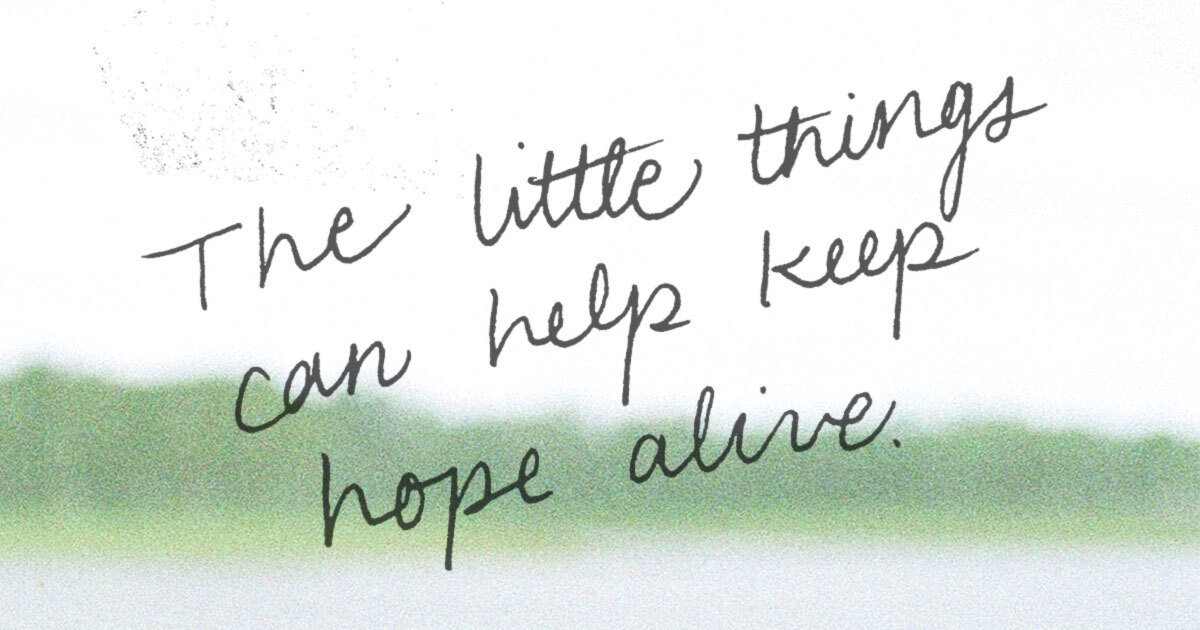 The little things
can help keep
hope alive.